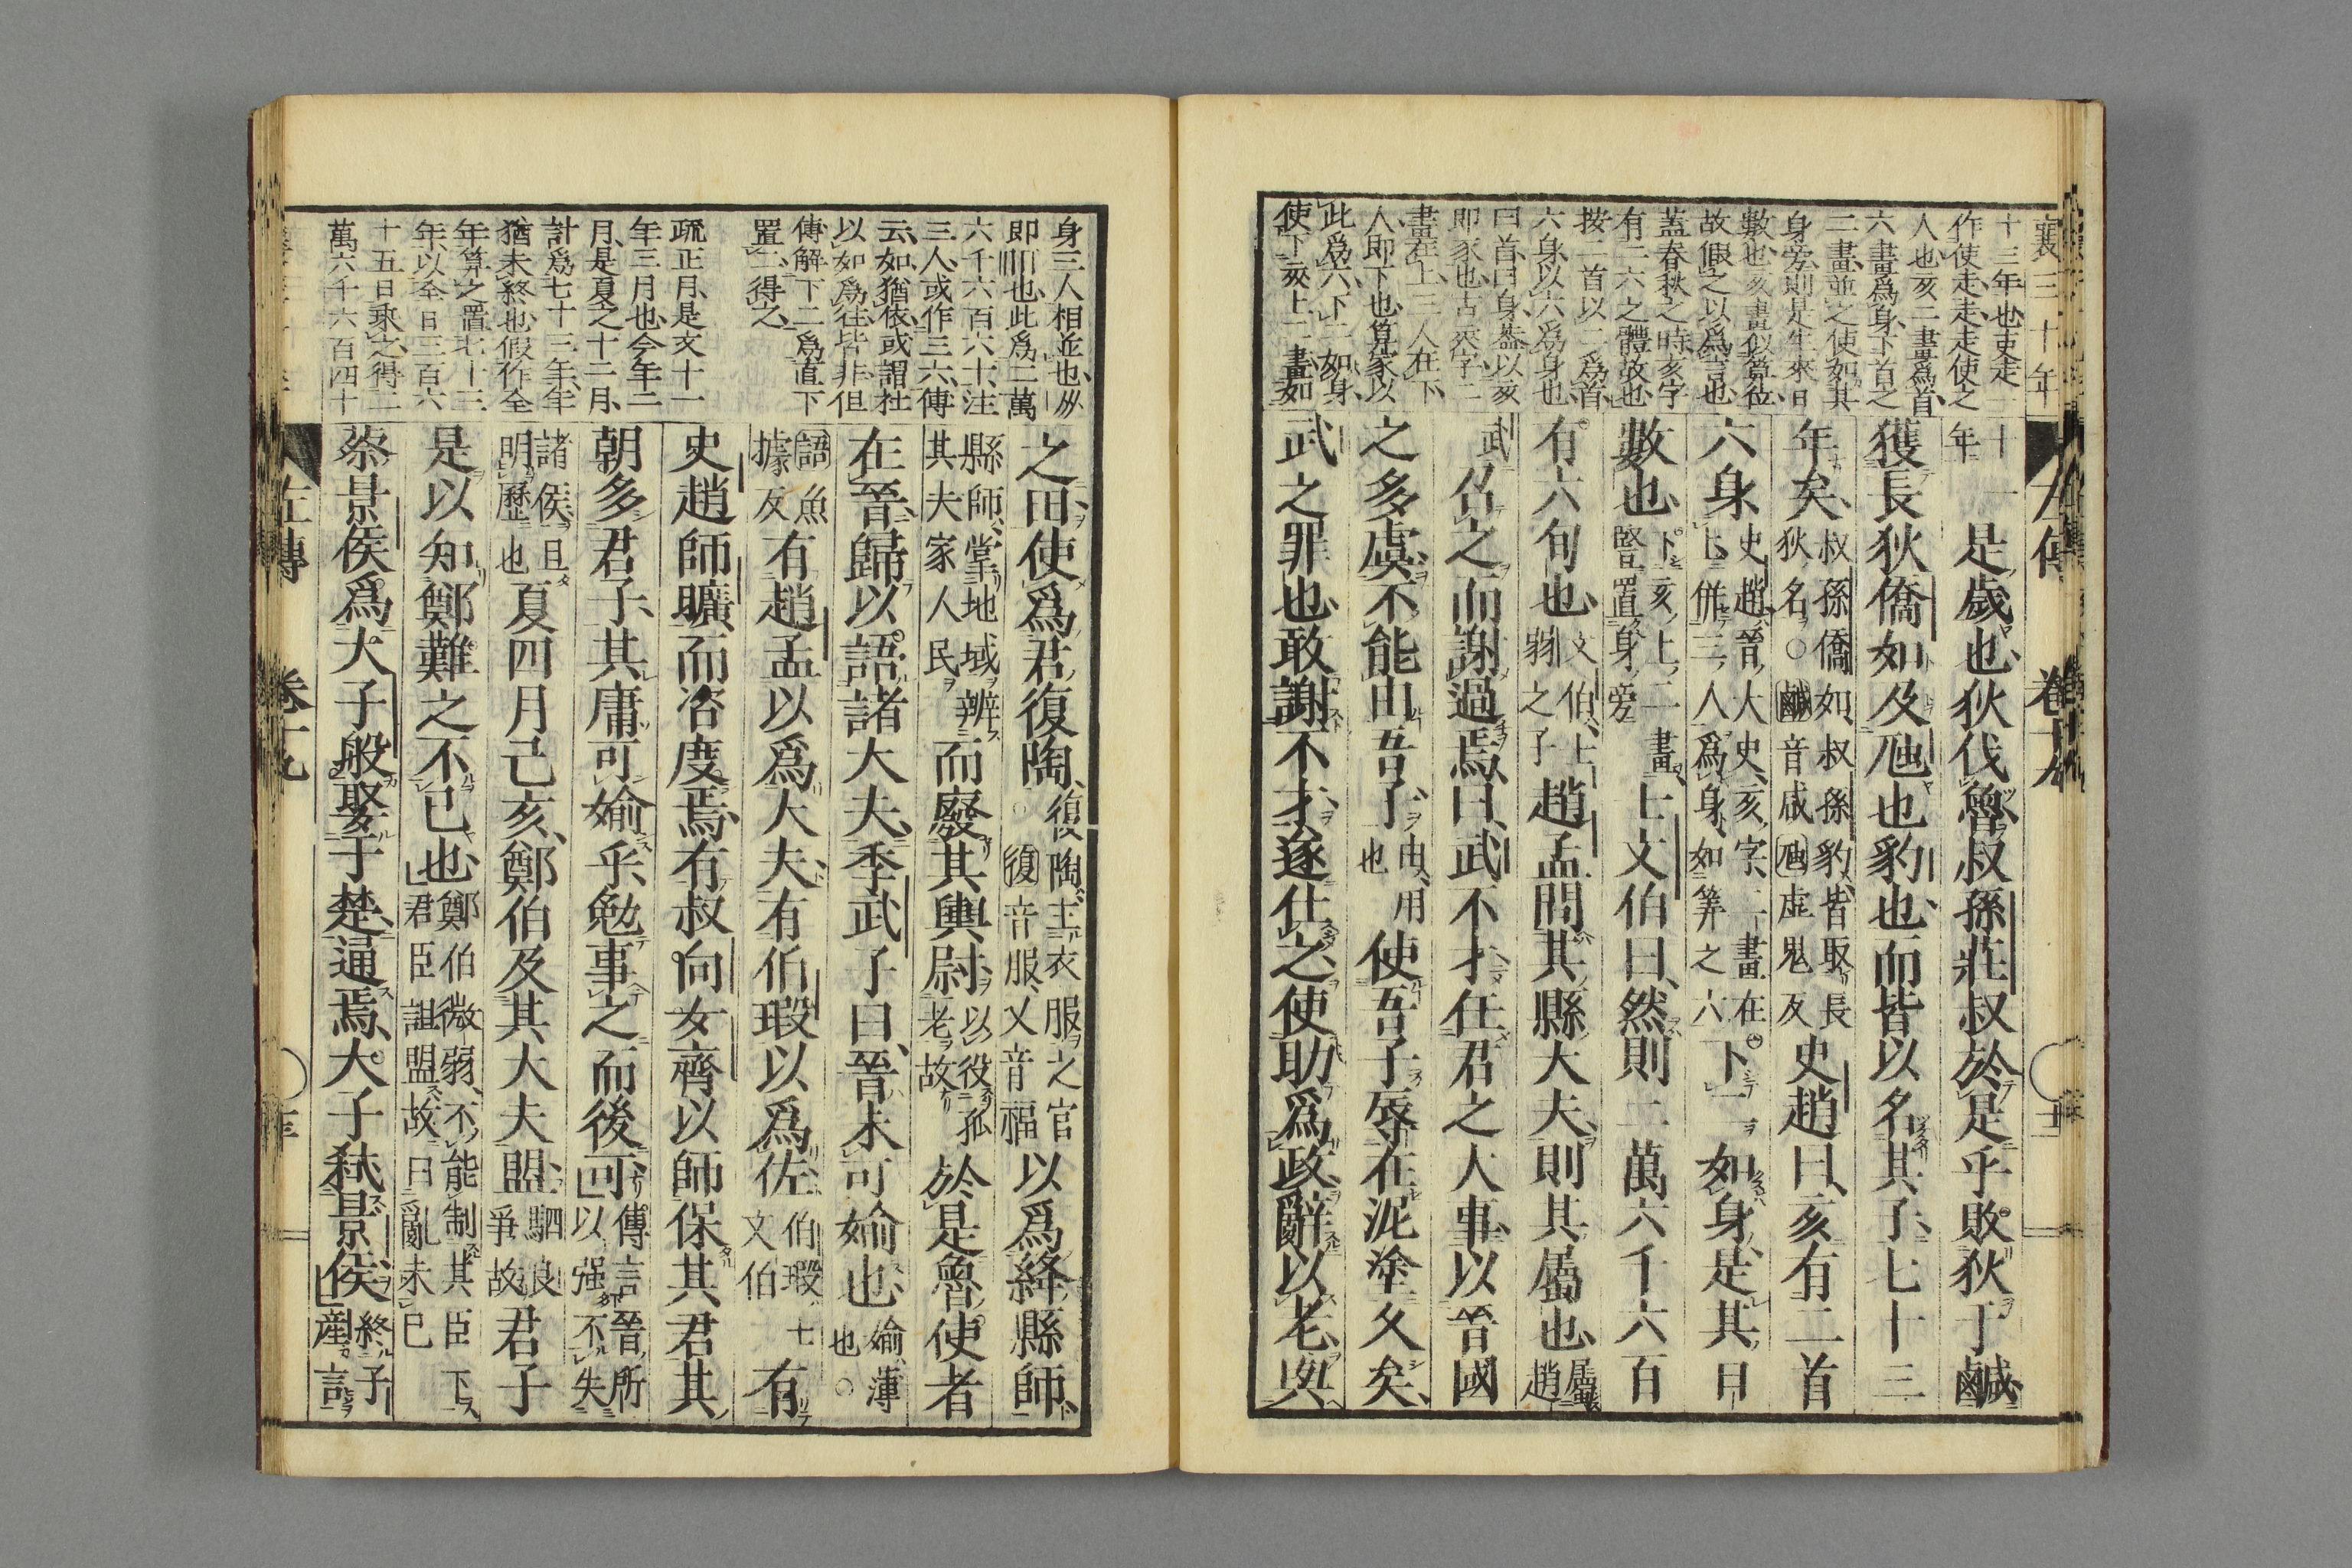 襄三十年
十三年也吏走
作使走走走使之
人也亥二畫爲首
六畫爲身下首之
二畫並之使如其
身旁則是生來日
數也亥畫似算位
故假之以爲言也
蓋春秋之時亥字
有二六之體故也
按二首以二爲首
六身以六爲身也
曰首曰身葢以亥
即家也古亥字二
畫在上三人在下
人即下也算家以
此爲六下二如身
使下亥上二畫如
十一年
是歲也狄伐魯叔孫莊叔於是乎敗狄于鹹
獲長狄僑如及虺也豹也而皆以名其子七十三
年矣
叔孫僑如叔孫豹皆取長
狄名○鹹音咸虺虛鬼反
史趙曰亥有二首
六身
史趙晉大史亥字二畫在
上併三人爲身如筭之六
下二如身是其日
數也
下亥上二畫
豎置身旁
士文伯曰然則二萬六千六百
有六旬也
文伯士
弱之子
趙孟問其縣大夫則其屬也
屬趙
武
召之而謝過焉曰武不才任君之大事以晉國
之多虞不能由吾子
由用
也
使吾子辱在泥塗久矣
武之罪也敢謝不才遂仕之使助爲政辭以老與
左傳 卷十九
十二
身三人相並也
六千六百六十注
三人或作三六傳
云如猶依或謂社
以如爲往皆非但
傳解下二爲直下
置二得之
疏正月是文十一
年三月也今年二
月是夏之十二月
計爲七十三年年
猶未終也假作全
年算之置七十三
年以全日三百六
十五日乘之得二
萬六千六百四十
之田使爲君復陶
復陶主衣服之官
復音服又音福
以爲絳縣師
縣師掌地域辨
其夫家人民
而廢其輿尉
以役孤
老故
於是魯使者
在晉歸以語諸大夫季武子曰晉未可媮也
媮薄
也○
語魚
據反
有趙孟以爲大夫有伯瑕以爲佐
伯瑕士
文伯
有
史趙師曠而咨度焉有叔向女齊以師保其君其
朝多君子其庸可媮乎勉事之而後可
傳言晉所
以强不失
諸侯且
明歷也
夏四月己亥鄭伯及其大夫盟
駟良
爭故
君子
是以知鄭難之不已也
鄭伯微弱不能制其臣下
君臣詛盟故曰亂未已
蔡景侯爲大子般娶于楚通焉大子弒景侯
終子
産言
左傳 卷十九